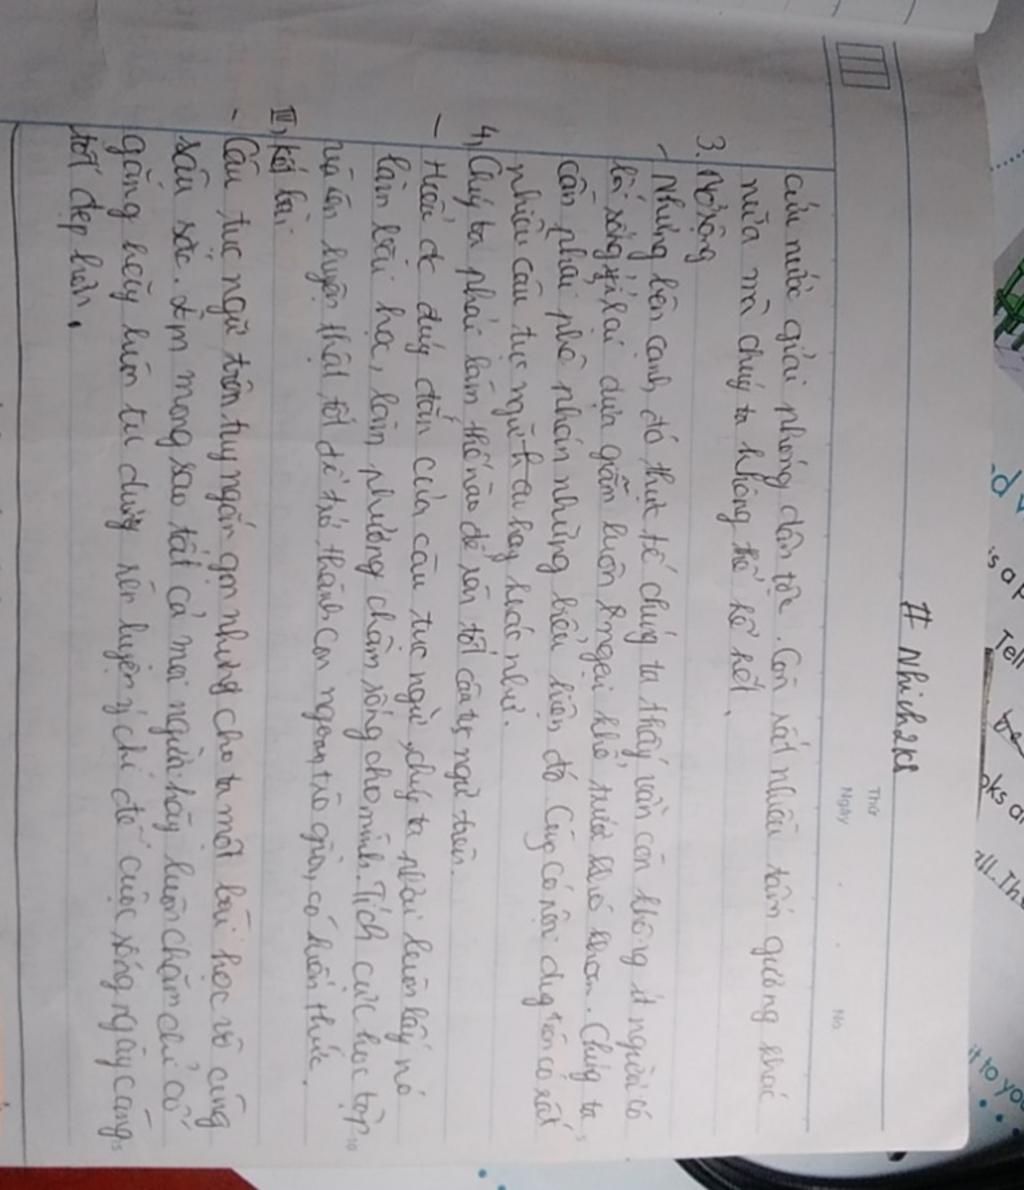 # Nhich2k8
Thứ
Ngày
No
cứu nước giải phóng dân tộc. Còn rất nhiều tấm gương khác
nữa mà chúng ta không thể kể hết.
3. Mở rộng
- Những bên cạnh đó thực tế chúng ta thấy vẫn còn không ít người có
lối sống ỷ lại dựa giẫm luôn ngại khổ trước khó khăn. Chúng ta
cần phải phê phán những biểu hiện đó Cùng có nội dung trên có rất
nhiều câu tục ngữ hay khác như.
4) Chúng ta phải làm thế nào để làm tốt câu tục ngữ trên.
- Hiểu đc đúng đắn của câu tục ngữ, chúng ta phải luôn lấy nó
làm bài học, làm phương châm sống cho mình. Tích cực học tập
và rèn luyện thật tốt để trở thành con ngoan, trò giỏi, có kiến thức.
III) Kết bài.
- Câu tục ngữ trên tuy ngắn gọn nhưng cho ta một bài học vô cùng
sâu sắc. Em mong sao tất cả mọi người hãy luôn chăm chỉ cố
gắng hãy luôn tu dưỡng rèn luyện ý chí để cuộc sống ngày càng
tốt đẹp hơn.
Tell
be
oks a
all. Th
it to you